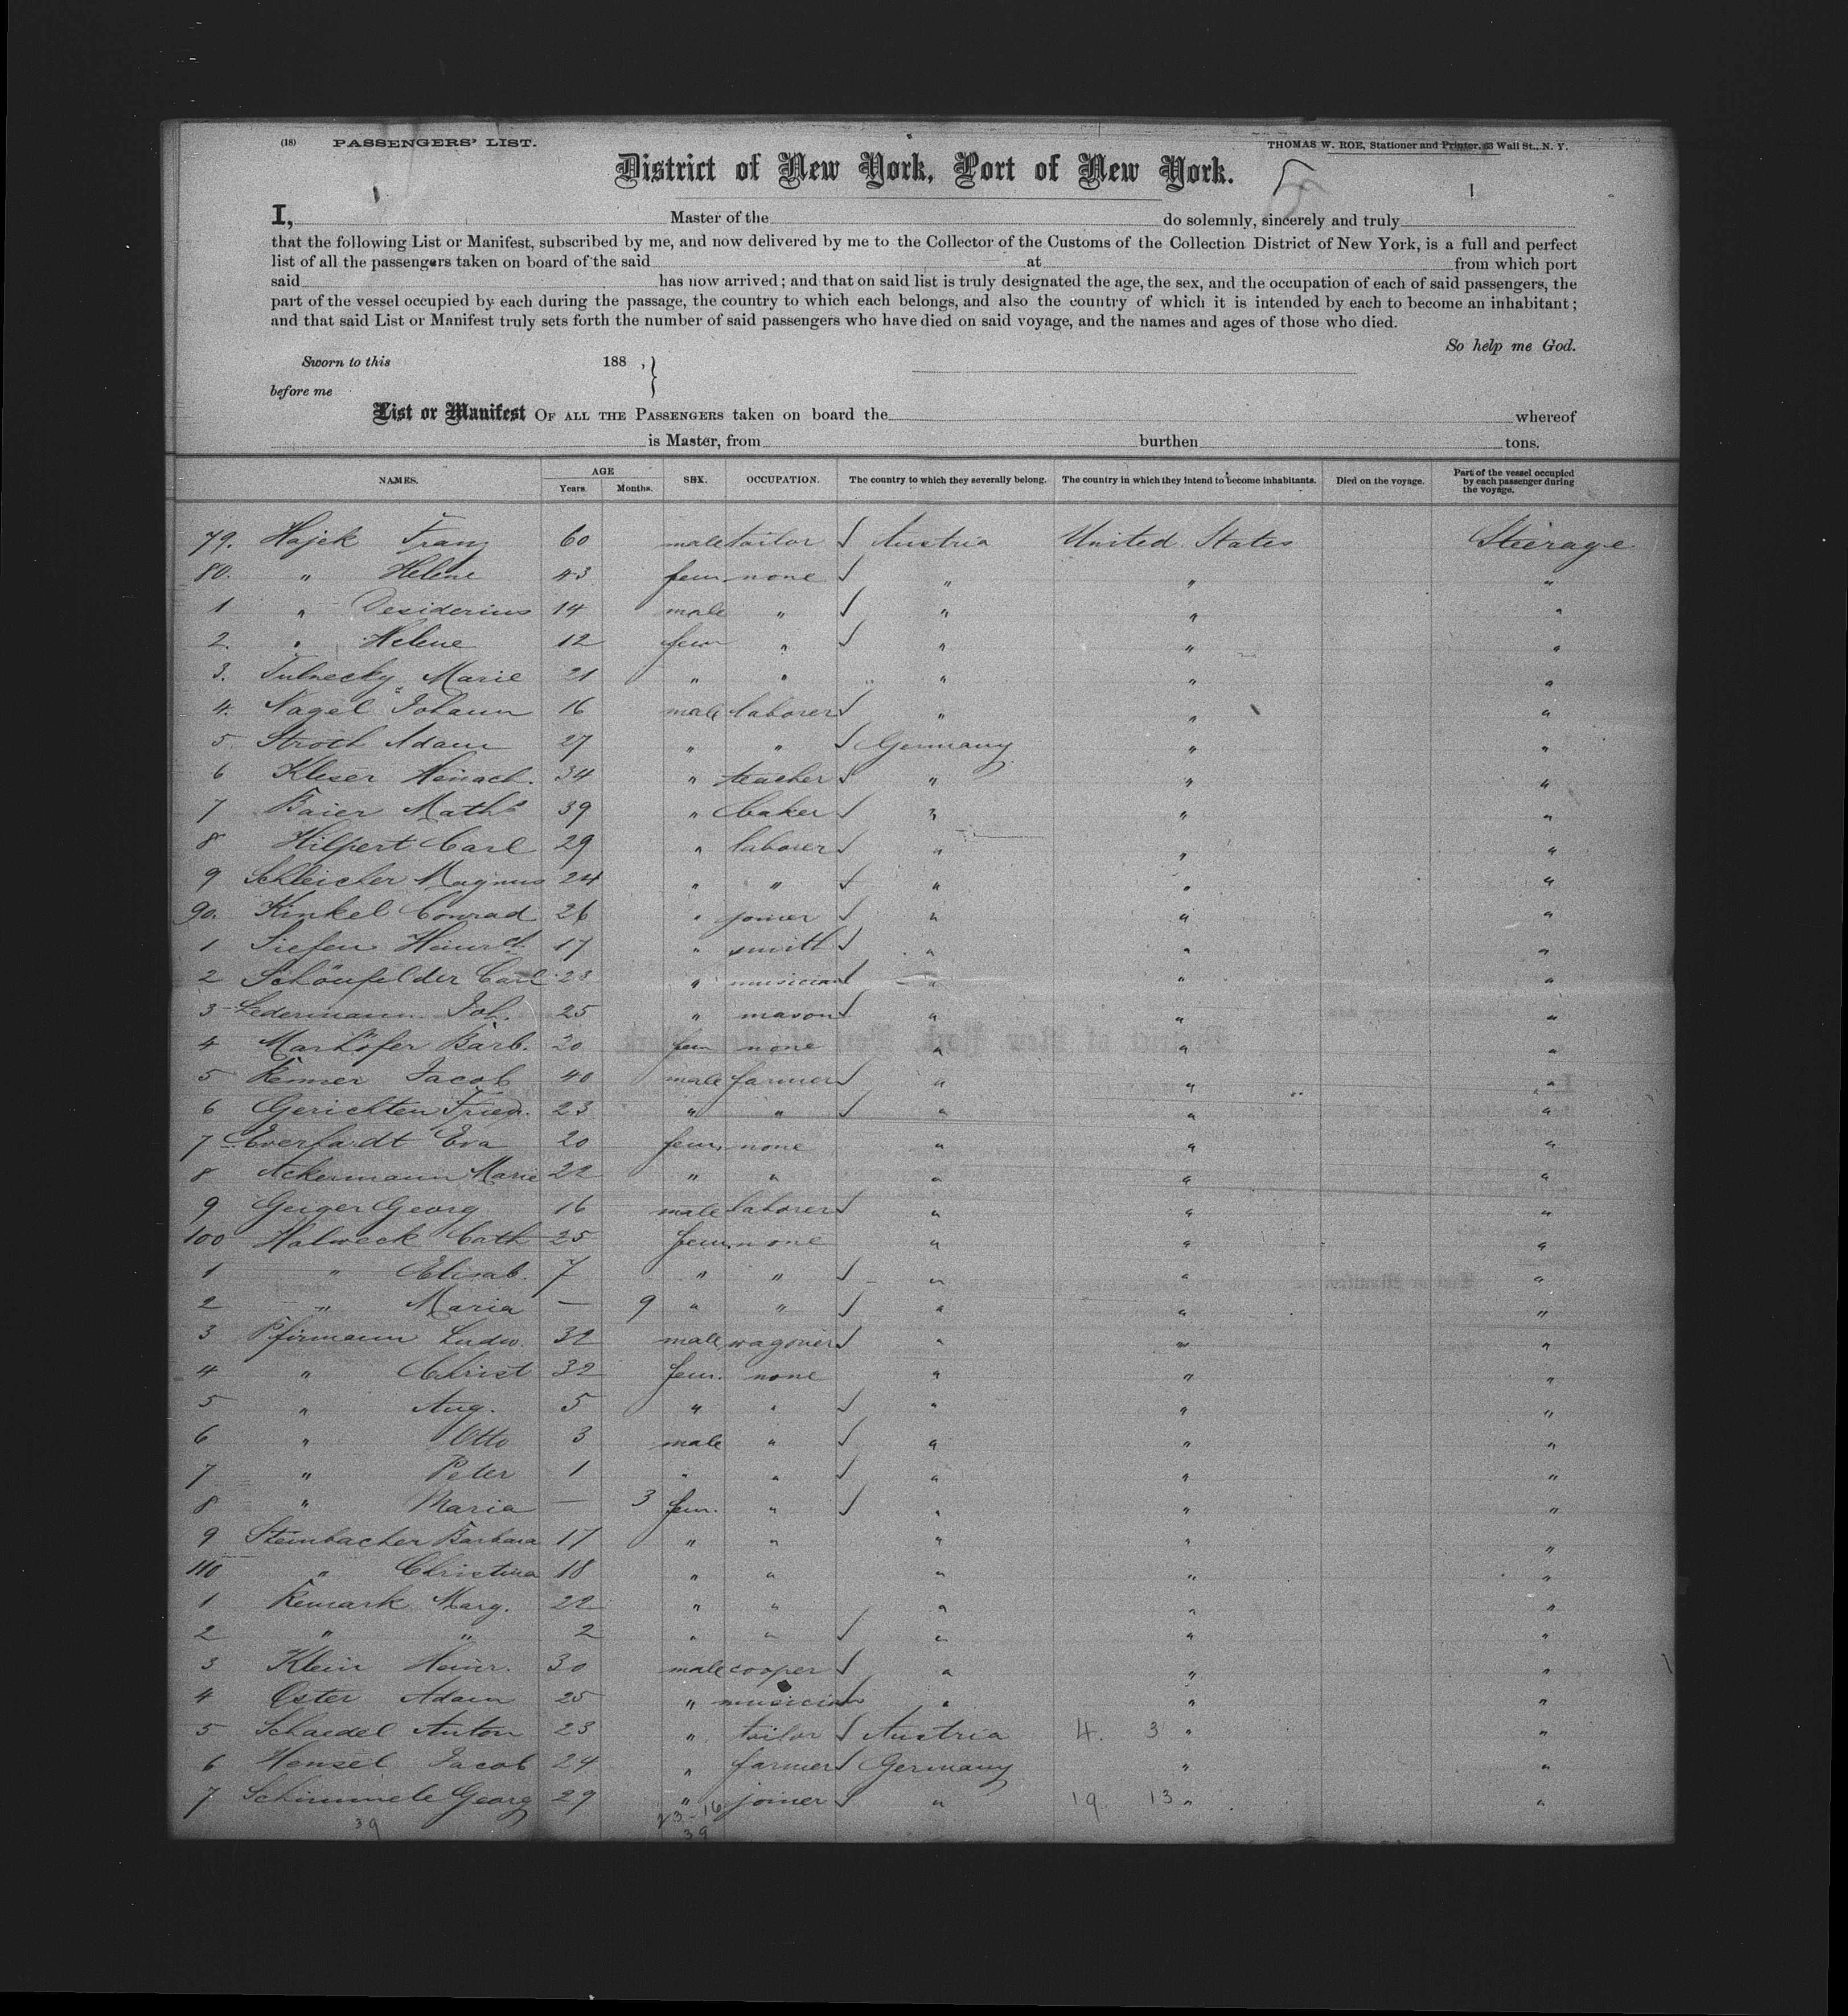 (18) PASSENGERS' LIST. THOMAS W. ROE, Stationer and Printer, 63 Wall St., N. Y.
District of New York, Port of New York.
I, Master of the do solemnly, sincerely and truly
that the following List or Manifest, subscribed by me, and now delivered by me to the Collector of the Customs of the Collection District of New York, is a full and perfect
list of all the passengers taken on board of the said at from which port
said has now arrived; and that on said list is truly designated the age, the sex, and the occupation of each of said passengers, the
part of the vessel occupied by each during the passage, the country to which each belongs, and also the country of which it is intended by each to become an inhabitant;
and that said List or Manifest truly sets forth the number of said passengers who have died on said voyage, and the names and ages of those who died.
So help me God.
Sworn to this 188 ,
before me
List or Manifest OF ALL THE PASSENGERS taken on board the whereof
is Master, from burthen tons.
NAMES. AGE Years. Months. SEX. OCCUPATION. The country to which they severally belong. The country in which they intend to become inhabitants. Died on the voyage. Part of the vessel occupied by each passenger during the voyage.
79. Hajek Franz 60 male tailor ✓ Austria United States Steerage
80. " Helene 43 fem none ✓ " " "
1 " Desiderius 14 male " ✓ " " "
2. " Helene 12 fem " ✓ " " "
3. Marie 21 " " " " "
4. Nagel Johann 16 male laborer ✓ " " "
5. Stroth Adam 27 " " ✓ Germany " "
6 Kleser 34 " teacher ✓ " " "
7 Baier Maths 39 " baker ✓ " " "
8 Hilpert Carl 29 " laborer ✓ " " "
9 Schleicher Magnus 24 " " ✓ " " "
90. Kinkel Conrad 26 " joiner ✓ " " "
1 Siefen Heinrch 17 " smith ✓ " " "
2 Schönfelder Carl 23 " musician ✓ " " "
3 Ledermann Joh. 25 " mason ✓ " " "
4 Marhöfer Barb. 20 fem none " " "
5 Jacob 40 male farmer ✓ " " "
6 Gerichten Friedr. 23 " " ✓ " " "
7 Everhardt Eva 20 fem. none " " "
8 Ackermann Marie 22 " " " " "
9 Geiger Georg 16 male laborer ✓ " " "
100 Halweck Cath 25 fem. none " " "
1 " Elisab. 7 " " ✓ " " "
2 " Maria — 9 " " ✓ " " "
3 Pfirmann Ludw. 32 male wagoner ✓ " " "
4 " Christ 32 fem. none " " "
5 " Aug. 5 " " ✓ " " "
6 " Otto 3 male " ✓ " " "
7 " Peter 1 " " ✓ " " "
8 " Maria — 3 fem. " ✓ " " "
9 Steinbacher Barbara 17 " " " " "
110 " Christina 18 " " " " "
1 Remark Marg. 22 " " " " "
2 " " 2 " " ✓ " " "
3 Klein Heinr. 30 male cooper ✓ " " "
4 Oster Adam 25 " musician ✓ " " "
5 Schaedel Anton 23 " tailor ✓ Austria 4. 3 " "
6 Hensel Jacob 24 " farmer ✓ Germany " "
7 Schimmele Georg 29 " joiner ✓ " 19 13 " "
39 23-16
39